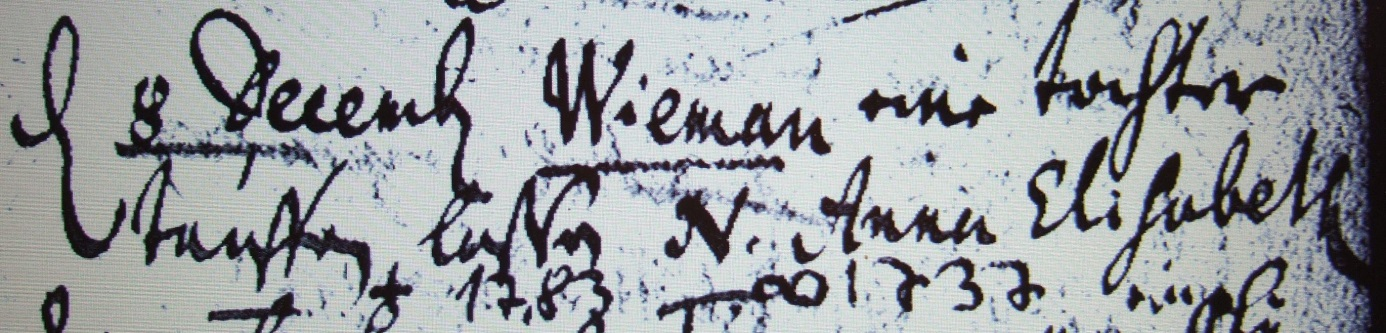 d 8 Decemb Wieman eine tochter
tauffen lassen N. Anna Elisabeth
+ 1783 ∞ 1737